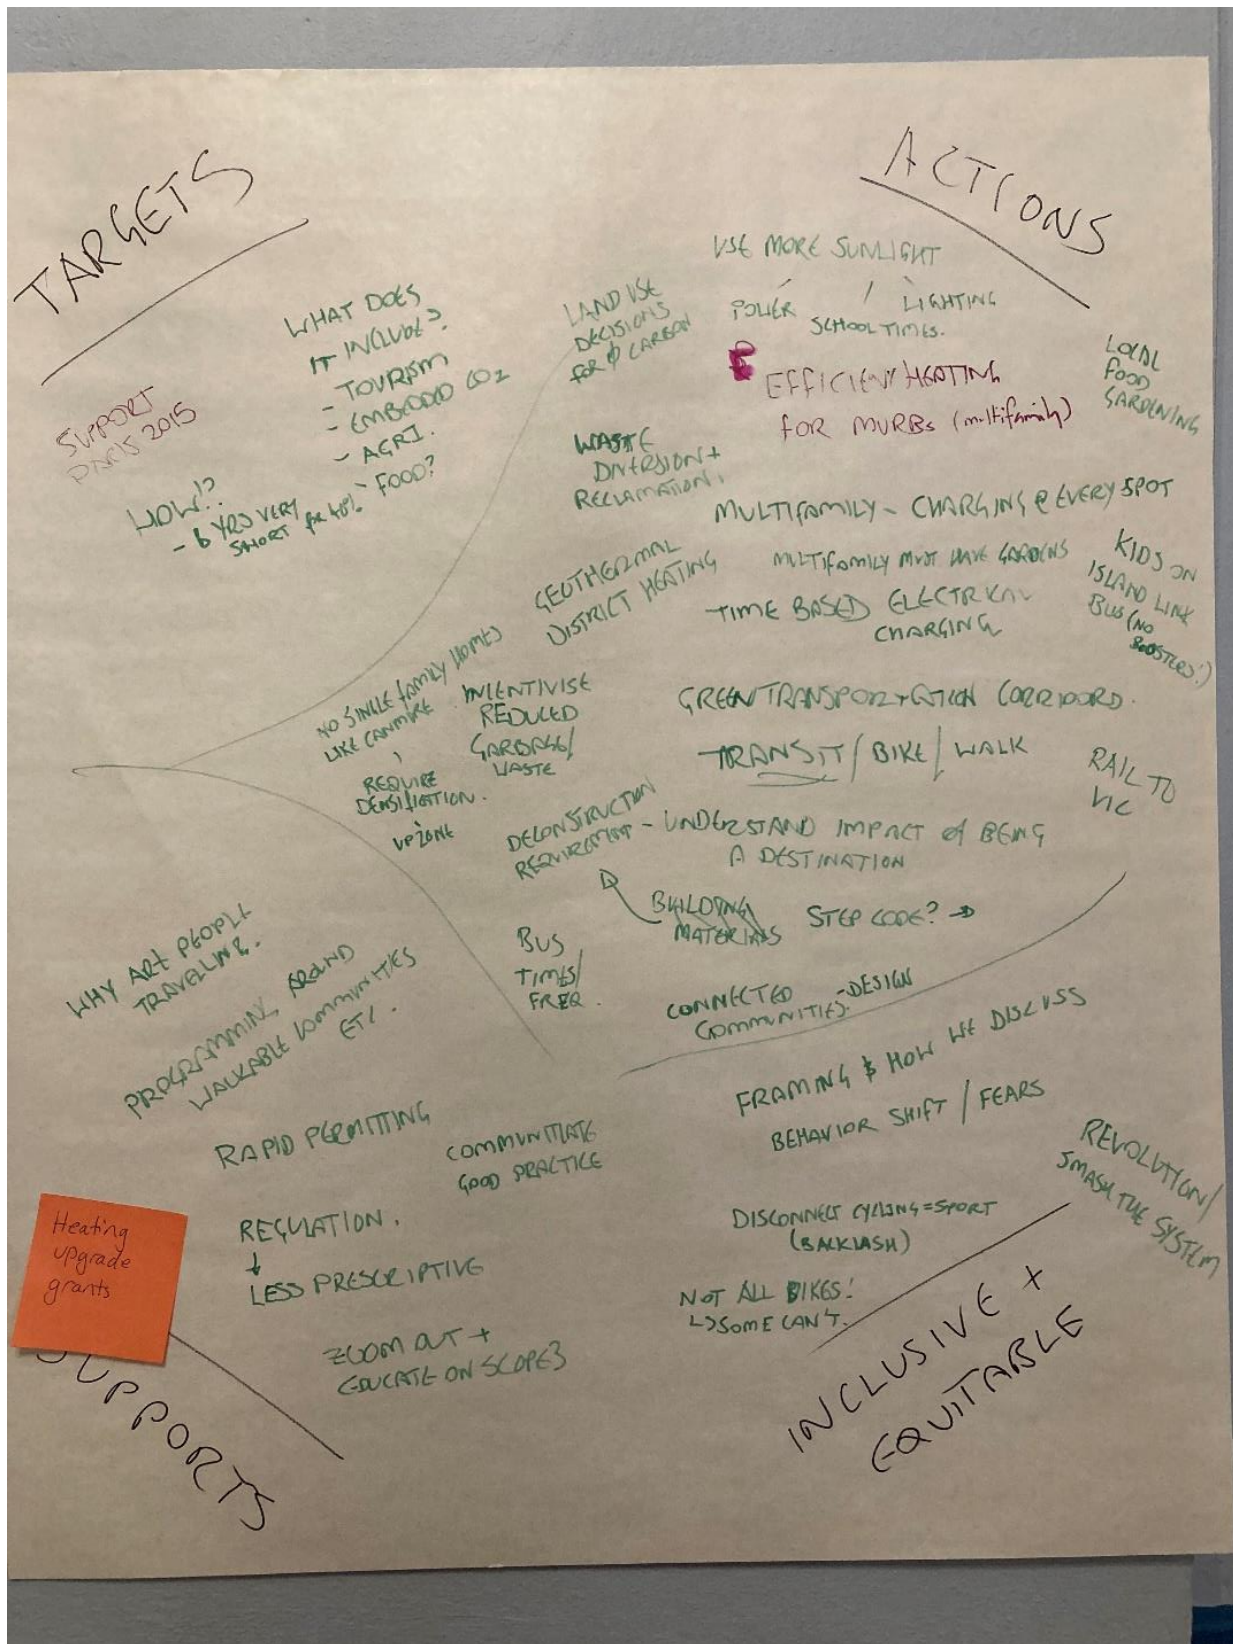 TARGETS
SUPPORT
PARIS 2015
WHAT DOES
IT INCLUDE?
- TOURISM
- EMBEDDED CO2
- AGRI.
- FOOD?
HOW!?
- 6 YRS VERY
SHORT for 40%
ACTIONS
USE MORE SUNLIGHT
POWER / LIGHTING
SCHOOL TIMES.
LAND USE
DECISIONS
for CARBON
EFFICIENT HEATING
for MURBs (multifamily)
LOCAL
FOOD
GARDENING
WASTE
DIVERSION +
RECLAMATION.
MULTIFAMILY - CHARGING @ EVERY SPOT
MULTIFAMILY MUST HAVE GARDENS
KIDS ON
ISLAND LINK
BUS (NO
BOOSTERS!)
GEOTHERMAL
DISTRICT HEATING
TIME BASED ELECTRICAL
CHARGING
NO SINGLE FAMILY HOMES
LIKE CANMORE
REQUIRE
DENSIFICATION.
UPZONE
INCENTIVISE
REDUCED
GARBAGE/
WASTE
GREEN TRANSPORTATION CORRIDORS.
TRANSIT / BIKE / WALK
RAIL TO
VIC
DECONSTRUCTION
REQUIREMENT
- UNDERSTAND IMPACT of BEING
A DESTINATION
BUILDING
MATERIALS
STEP CODE? →
BUS
TIMES/
FREQ.
CONNECTED - DESIGN
COMMUNITIES.
WHY ARE PEOPLE
TRAVELLING.
PROGRAMMING AROUND
WALKABLE COMMUNITIES
ETC.
RAPID PERMITTING
COMMUNICATE
GOOD PRACTICE
REGULATION.
↓
LESS PRESCRIPTIVE
ZOOM OUT +
EDUCATE ON SCOPE 3
Heating
upgrade
grants
SUPPORTS
FRAMING & HOW WE DISCUSS
BEHAVIOR SHIFT / FEARS
REVOLUTION/
SMASH THE SYSTEM
DISCONNECT CYCLING = SPORT
(BACKLASH)
NOT ALL BIKES!
↳ SOME CAN'T.
INCLUSIVE +
EQUITABLE